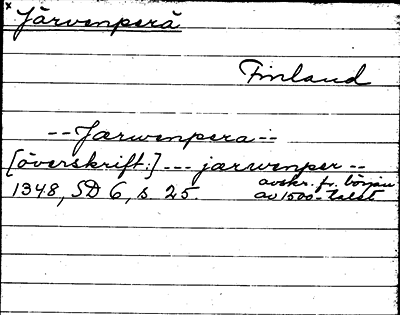 × Järvenperä
Finland
-- Jærwenpera --
[överskrift:] --- jærwenper --
1348, SD 6, s. 25. avskr. fr. början
av 1500-talet